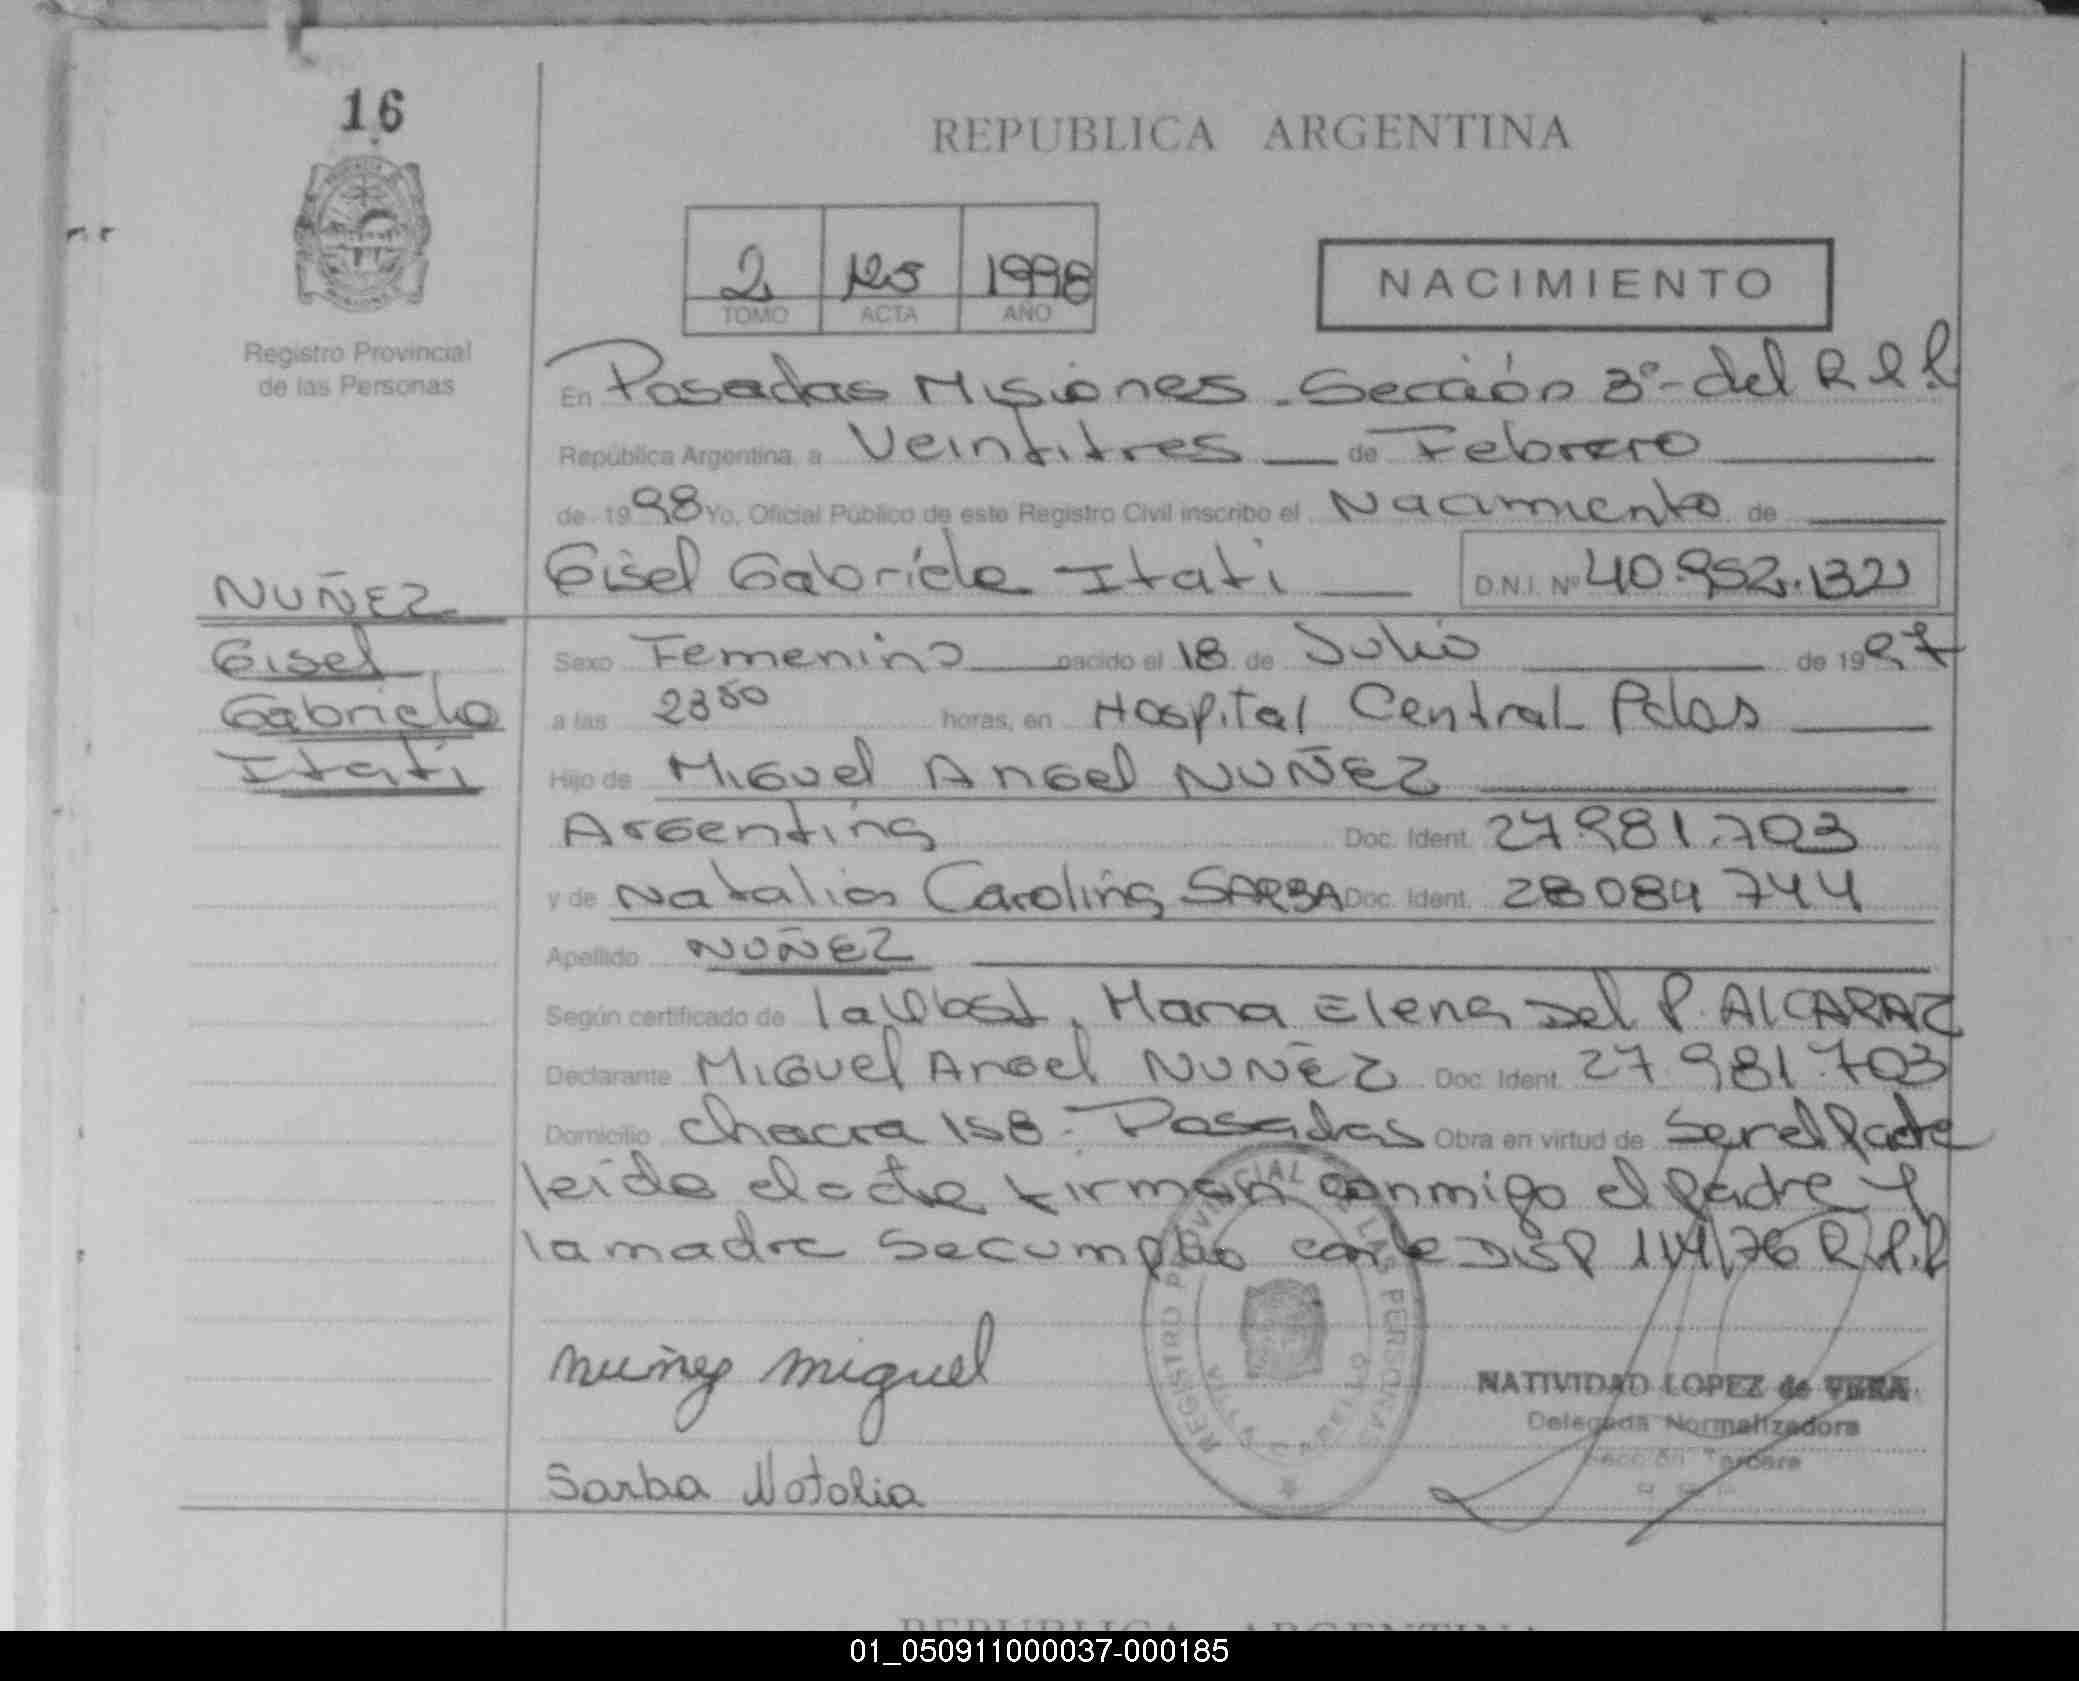 16
REPUBLICA ARGENTINA
2 125 1998
TOMO ACTA AÑO
NACIMIENTO
Registro Provincial
de las Personas
En Posadas Misiones - Sección 3º - del R.P.P
República Argentina, a Veintitres de Febrero
de 1998 Yo, Oficial Público de este Registro Civil inscribo el Nacimiento de
Gisel Gabriela Itati D.N.I. Nº 40.952.132
NUÑEZ
Gisel
Gabriela
Itati
Sexo Femenino nacido el 18 de Julio de 1997
a las 23 50 horas, en Hospital Central Pdas
Hijo de Miguel Angel NUÑEZ
Argentina Doc. Ident. 27.981.703
y de Natalia Carolina SARBA Doc. Ident. 28 084 744
Apellido NUÑEZ
Según certificado de la Obst. Maria Elena Del P. ALCARAZ
Declarante Miguel Angel NUÑEZ Doc. Ident. 27.981.703
Domicilio Chacra 158 - Posadas Obra en virtud de ser el padre
leida el acta firman conmigo el padre y
la madre Se cumplio con la DISP 114/76 R.P.P
REGISTRO PROVINCIAL DE LAS PERSONAS
Nuñez Miguel
NATIVIDAD LOPEZ de VERA
Delegada Normalizadora
Sección Tercera
Sarba Natalia
REPUBLICA ARGENTINA
01_050911000037-000185